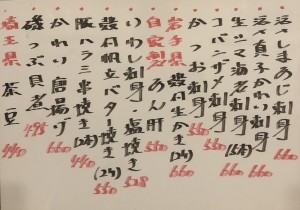 活〆しまあじ刺身 660
活〆真子かれい刺身 660
生ツマ海老刺身(1本) 660
コバンザメ刺身 660
かつお刺身 550
岩手県 殻付生かき(2ヶ) 660
自家製 あん肝 550
いわし刺身 塩焼き 528
殻付帆立バター焼き(2ヶ) 550
豚ハラミ串焼き(2本) 440
かれい唐揚げ 660
磯つぶ貝煮 495
埼玉県 茶豆 440